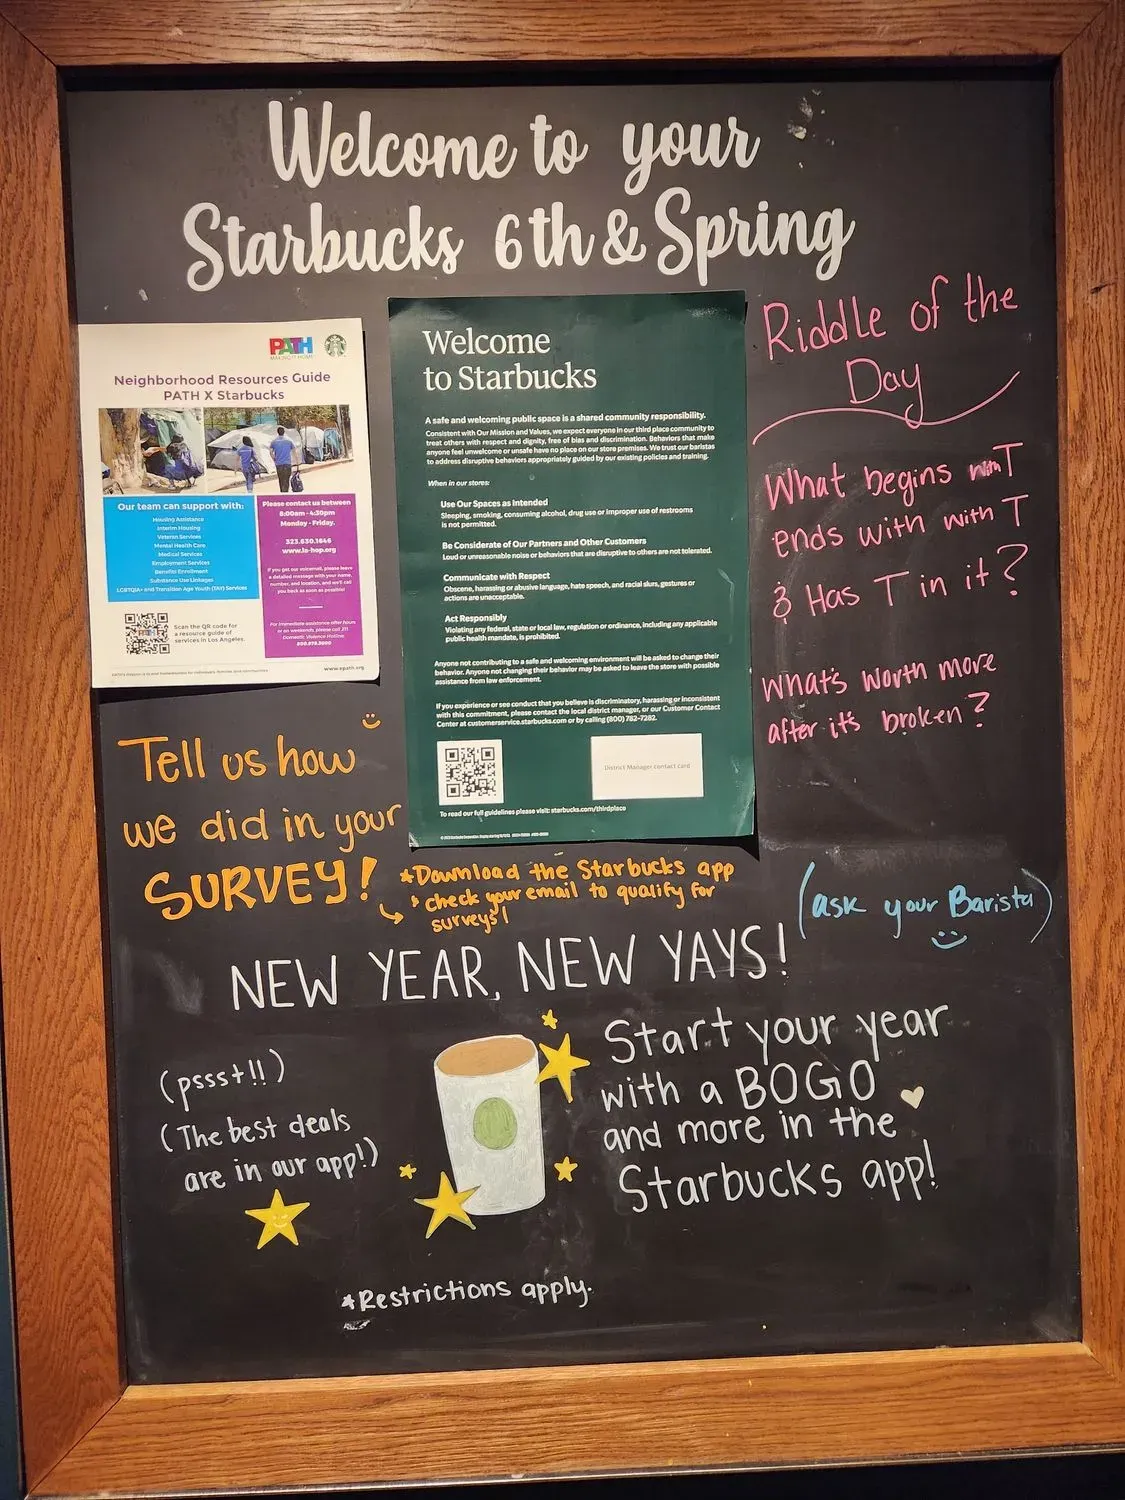 Welcome to your
Starbucks 6th & Spring
PATH
MAKING IT HOME
Neighborhood Resources Guide
PATH X Starbucks
Our team can support with:
Housing Assistance
Interim Housing
Veteran Services
Mental Health Care
Medical Services
Employment Services
Benefits Enrollment
Substance Use Linkages
LGBTQIA+ and Transition Age Youth (TAY) Services
Please contact us between
8:00am - 4:30pm
Monday - Friday.
323.630.1646
www.la-hop.org
If you get our voicemail, please leave
a detailed message with your name,
number, and location, and we'll call
you back as soon as possible!
For immediate assistance after hours
or on weekends, please call 211
Domestic Violence Hotline
Scan the QR code for
a resource guide of
services in Los Angeles.
www.epath.org
Welcome
to Starbucks
A safe and welcoming public space is a shared community responsibility.
Consistent with Our Mission and Values, we expect everyone in our third place community to
treat others with respect and dignity, free of bias and discrimination. Behaviors that make
anyone feel unwelcome or unsafe have no place on our store premises. We trust our baristas
to address disruptive behaviors appropriately guided by our existing policies and training.
When in our stores:
Use Our Spaces as Intended
Sleeping, smoking, consuming alcohol, drug use or improper use of restrooms
is not permitted.
Be Considerate of Our Partners and Other Customers
Loud or unreasonable noise or behaviors that are disruptive to others are not tolerated.
Communicate with Respect
Obscene, harassing or abusive language, hate speech, and racial slurs, gestures or
actions are unacceptable.
Act Responsibly
Violating any federal, state or local law, regulation or ordinance, including any applicable
public health mandate, is prohibited.
Anyone not contributing to a safe and welcoming environment will be asked to change their
behavior. Anyone not changing their behavior may be asked to leave the store with possible
assistance from law enforcement.
If you experience or see conduct that you believe is discriminatory, harassing or inconsistent
with this commitment, please contact the local district manager, or our Customer Contact
Center at customerservice.starbucks.com or by calling (800) 782-7282.
District Manager contact card
To read our full guidelines please visit: starbucks.com/thirdplace
Riddle of the
Day
What begins with T
ends with with T
& Has T in it?
What's worth more
after it's broken?
(ask your Barista)
Tell us how
we did in your
SURVEY!
*Download the Starbucks app
* check your email to qualify for
surveys!
NEW YEAR, NEW YAYS!
(pssst!!)
(The best deals
are in our app!)
Start your year
with a BOGO
and more in the
Starbucks app!
*Restrictions apply.